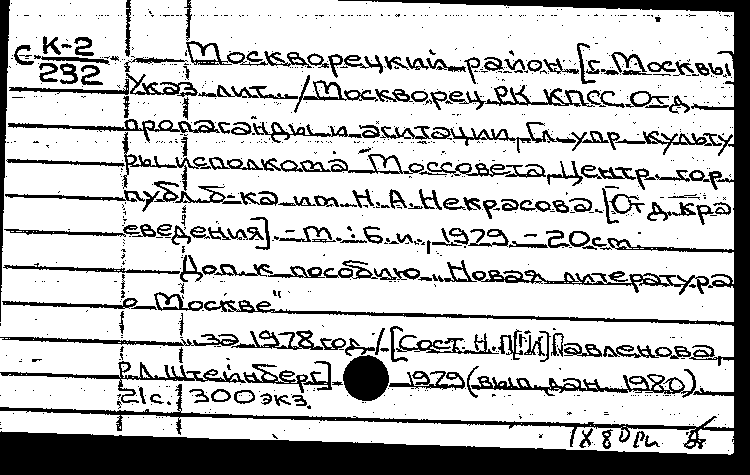 С К-2/232
Москворецкий район [г. Москвы]
Указ. лит... /Москворец. РК КПСС. Отд.
пропаганды и агитации, Гл. упр. культу
ры исполкома Моссовета, Центр. гор.
публ. б-ка им. Н.А. Некрасова. [Отд. кра
еведения]. - М. : Б.и., 1979. - 20см.
Доп. к пособию „Новая литература
о Москве"
...за 1978 год / [Сост. Н. Павленова,
Р.Л. Штейнберг] 1979 (вып. дан. 1980).
21с. 300 экз.